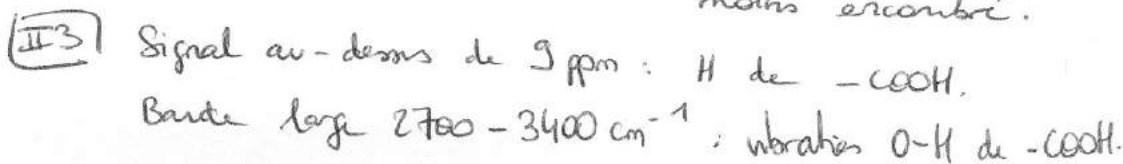 moins encombré.
II3 Signal au-dessus de 9 ppm : H de -COOH.
Bande large 2700 - 3400 cm-1 : vibration O-H de -COOH.